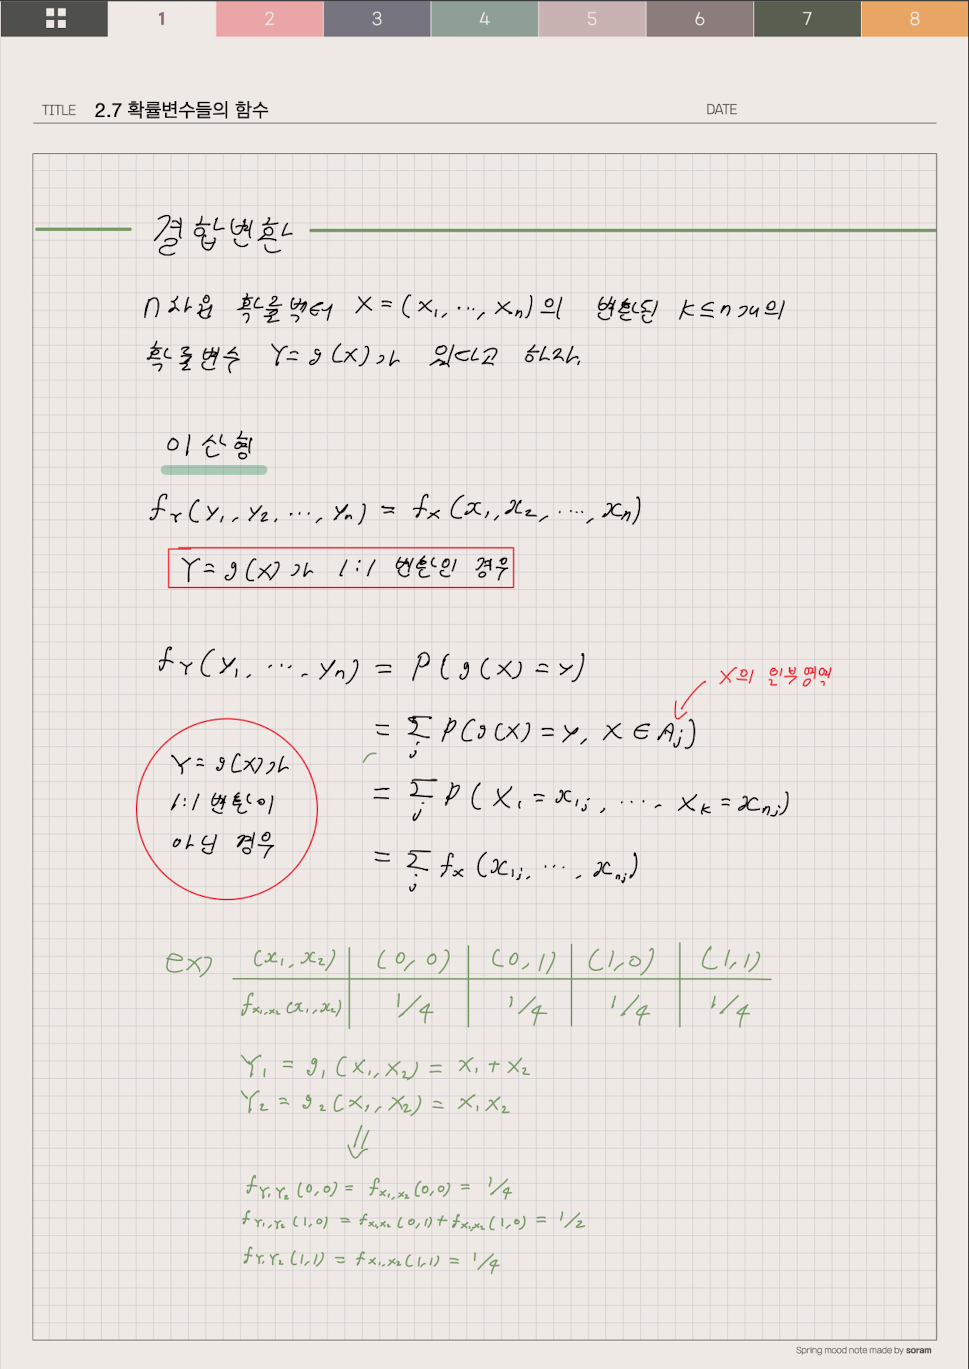 1 2 3 4 5 6 7 8
TITLE 2.7 확률변수들의 함수 DATE
결합변환
n차원 확률벡터 X = (X₁, ···, Xₙ)의 변환된 k≤n개의
확률변수 Y = g(X)가 있다고 하자.
이산형
f_Y(y₁, y₂, ···, yₙ) = f_X(x₁, x₂, ···, xₙ)
Y = g(X)가 1:1 변환인 경우
f_Y(y₁, ···, yₙ) = P(g(X) = y)
X의 일부영역
= Σ_j P(g(X) = y, X ∈ A_j)
Y = g(X)가
1:1 변환이
아닌 경우
= Σ_j P(X₁ = x₁ⱼ, ···, X_k = x_nj)
= Σ_j f_X(x₁ⱼ, ···, x_nj)
ex) (x₁, x₂) (0, 0) (0, 1) (1, 0) (1, 1)
f_X₁,X₂(x₁, x₂) 1/4 1/4 1/4 1/4
Y₁ = g₁(X₁, X₂) = X₁ + X₂
Y₂ = g₂(X₁, X₂) = X₁X₂
⇓
f_Y₁,Y₂(0,0) = f_X₁,X₂(0,0) = 1/4
f_Y₁,Y₂(1,0) = f_X₁,X₂(0,1) + f_X₁,X₂(1,0) = 1/2
f_Y₁,Y₂(1,1) = f_X₁,X₂(1,1) = 1/4
Spring mood note made by soram